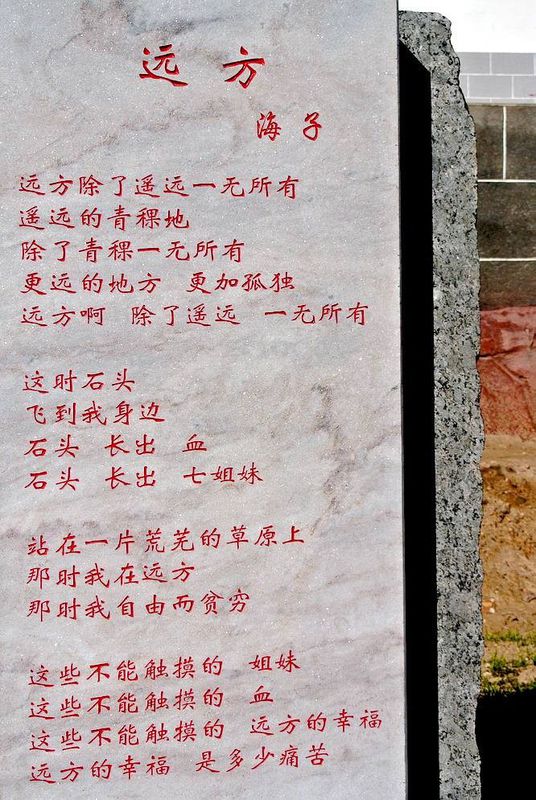 远方
海子
远方除了遥远一无所有
遥远的青稞地
除了青稞一无所有
更远的地方 更加孤独
远方啊 除了遥远 一无所有
这时石头
飞到我身边
石头 长出 血
石头 长出 七姐妹
站在一片荒芜的草原上
那时我在远方
那时我自由而贫穷
这些不能触摸的 姐妹
这些不能触摸的 血
这些不能触摸的 远方的幸福
远方的幸福 是多少痛苦